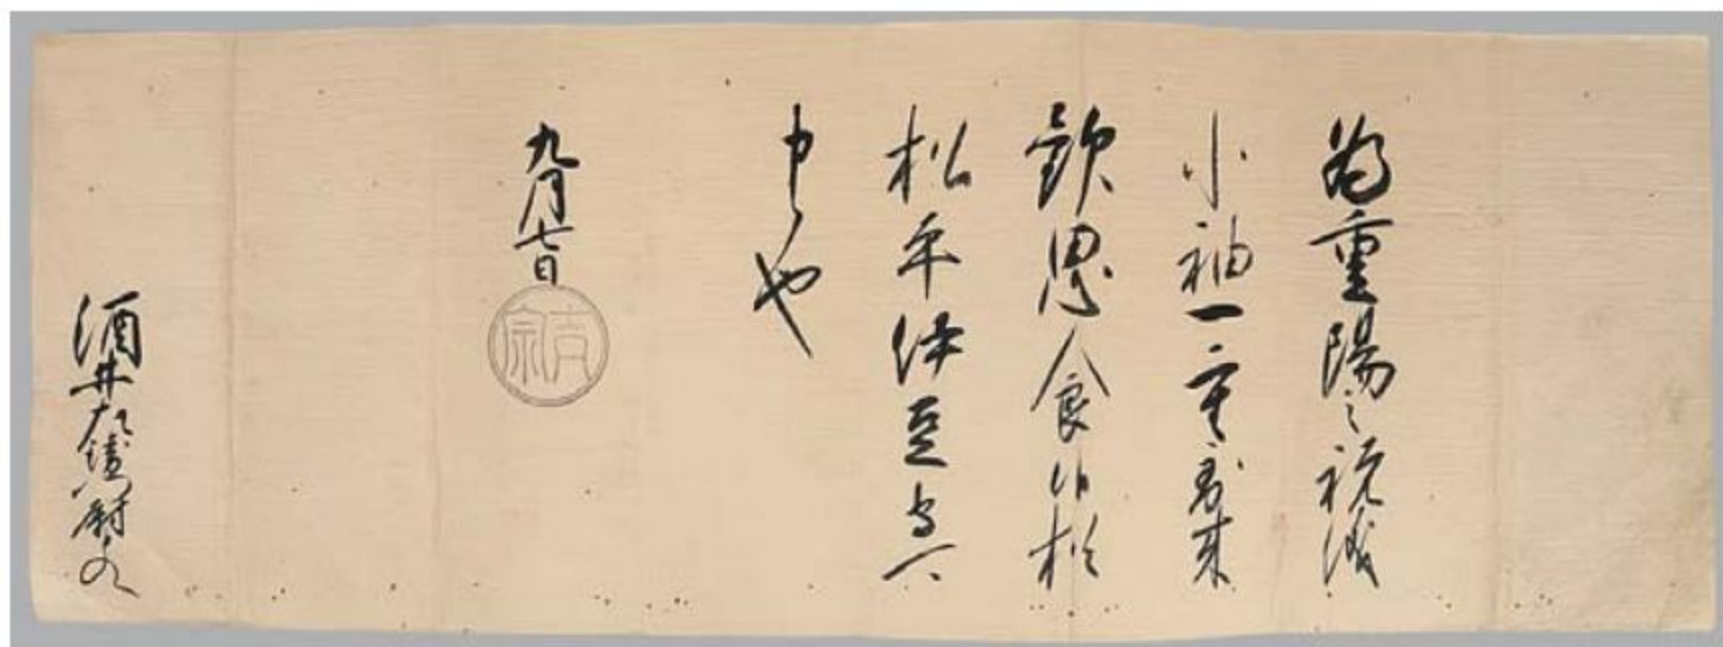 為重陽之祝儀
小袖一重到来
歓思食候猶
松平伊豆守可
申候也
九月七日
吉宗
酒井左衛門尉とのへ